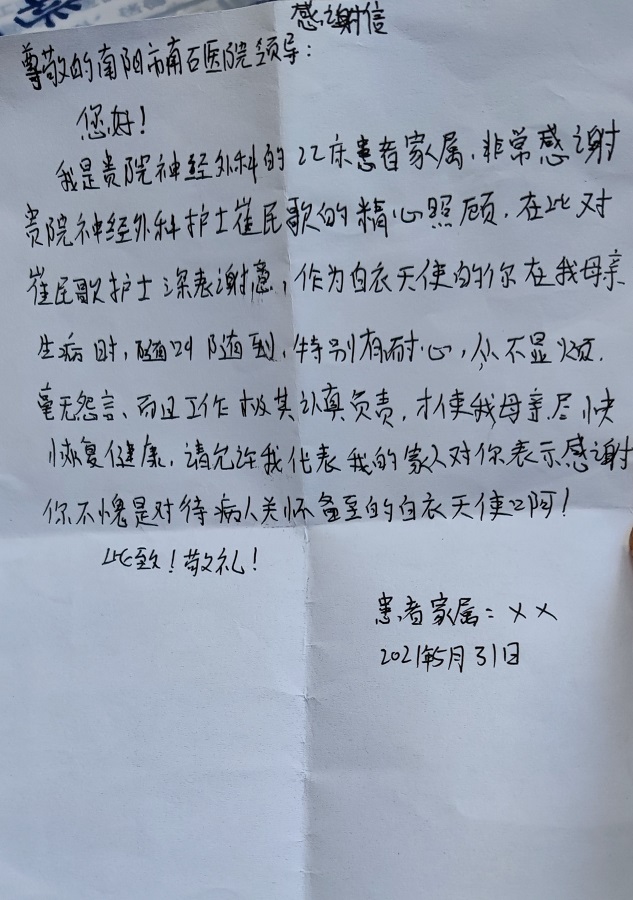 感谢信
尊敬的南阳市南石医院领导：
您好！
我是贵院神经外科的22床患者家属，非常感谢
贵院神经外科护士崔民歌的精心照顾，在此对
崔民歌护士深表谢意，作为白衣天使的你在我母亲
生病时，随叫随到，特别有耐心，从不显烦，
毫无怨言、而且工作极其认真负责，才使我母亲尽快
恢复健康，请允许我代表我的家人对你表示感谢
你不愧是对待病人关怀备至的白衣天使啊！
此致！敬礼！
患者家属：××
2021年5月31日